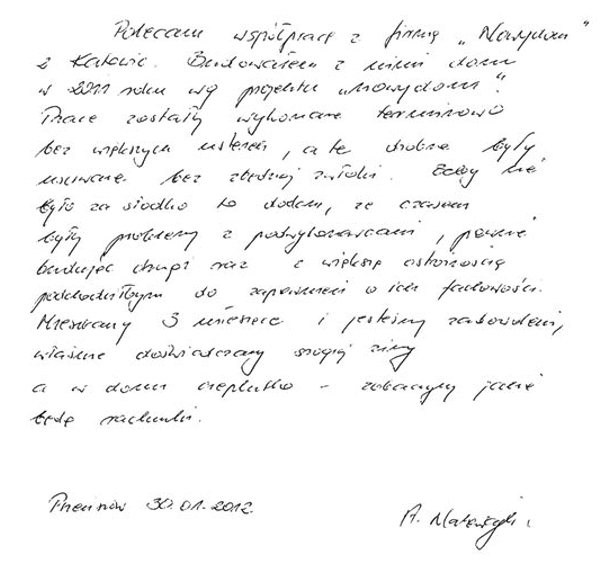 Polecam współpracę z firmą „Nawydom"
z Katowic. Budowałem z nimi dom
w 2011 roku wg projektu „nowydom".
Prace zostały wykonane terminowo
bez większych usterek, a te drobne były
usuwane bez zbędnej zwłoki. Żeby nie
było za słodko to dodam, że czasem
były problemy z podwykonawcami, pewnie
budując drugi raz z większą ostrożnością
podchodziłbym do zapewnień o ich fachowości.
Mieszkamy 3 miesiące i jesteśmy zadowoleni,
właśnie doświadczamy srogiej zimy
a w domu cieplutko - zobaczymy jakie
będą rachunki.
30.01.2012
A.